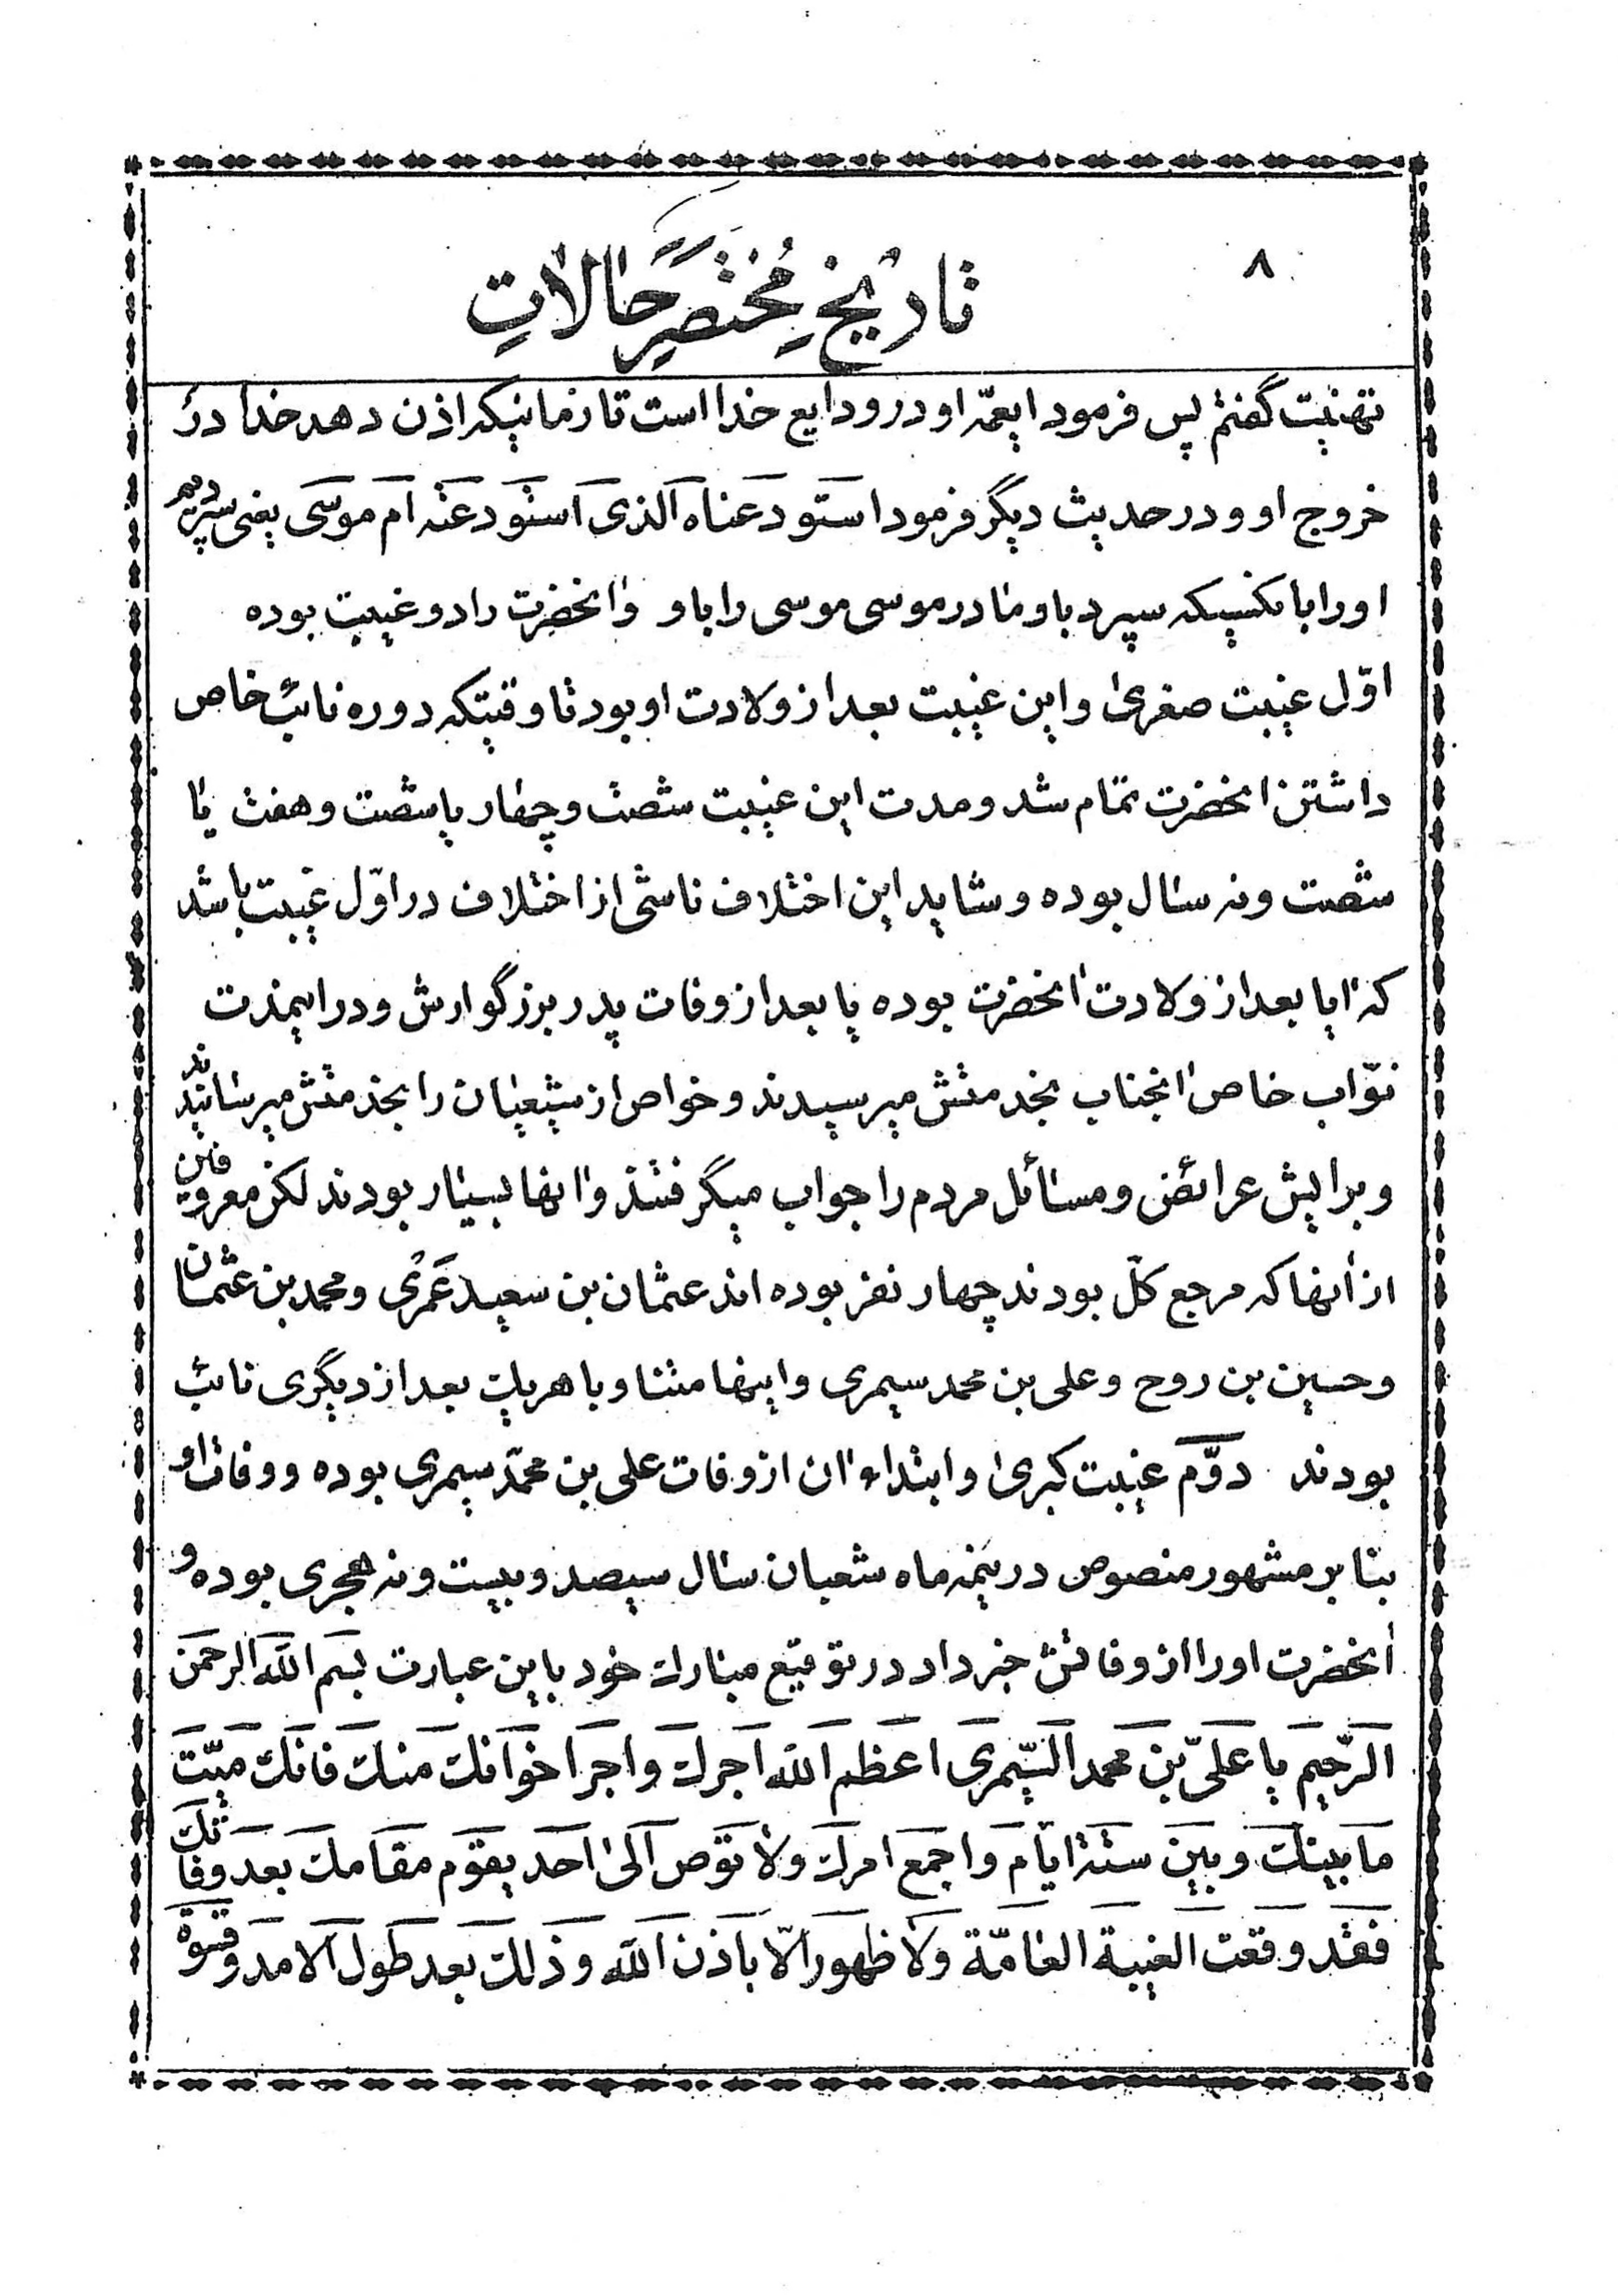 ۸
تاریخ مختصر حالات
تهنیت گفتم پس فرمود ایعمّه او در ودایع خدا است تا زمانیکه اذن دهد خدا در
خروج او و در حدیث دیگر فرمود استودعناه الذی استودعته ام موسی یعنی سپردیم
او را بانکسیکه سپرد باو مادر موسی موسی را باو وانحضرت را دو غیبت بوده
اوّل غیبت صغری واین غیبت بعد از ولادت او بود تا وقتیکه دوره نائب خاص
داشتن انحضرت تمام شد و مدت این غیبت شصت و چهار یا شصت و هفت یا
شصت و نه سال بوده و شاید این اختلاف ناشی از اختلاف در اوّل غیبت باشد
که ایا بعد از ولادت انحضرت بوده یا بعد از وفات پدر بزرگوارش و در اینمدت
نوّاب خاص انجناب بخدمتش میرسیدند و خواص از شیعیان را بخدمتش میرسانیدند
و برایش عرائض و مسائل مردم را جواب میگرفتند وانها بسیار بودند لکن معروفین
از انها که مرجع کلّ بودند چهار نفر بوده اند عثمان بن سعید عَمری و محمد بن عثمان
و حسین بن روح و علی بن محمد سیمری و اینها متناوبا هریک بعد از دیگری نائب
بودند دوّم غیبت کبری و ابتداء ان از وفات علی بن محمّد سیمری بوده و وفات او
بنا بر مشهور منصوص در نیمه ماه شعبان سال سیصد و بیست و نه هجری بوده و
انحضرت او را از وفاتش خبر داد در توقیع مبارک خود باین عبارت بسم الله الرحمن
الرّحیم یا علیّ بن محمد السّیمری اعظم الله اجرک و اجر اخوانک منک فانک میّت
ما بینک و بین ستة ایّام و اجمع امرک ولا توص الی احد یقوم مقامک بعد وفاتک
فقد وقعت الغیبة التامّة ولا ظهور الّا باذن الله و ذلک بعد طول الامد و قسوة